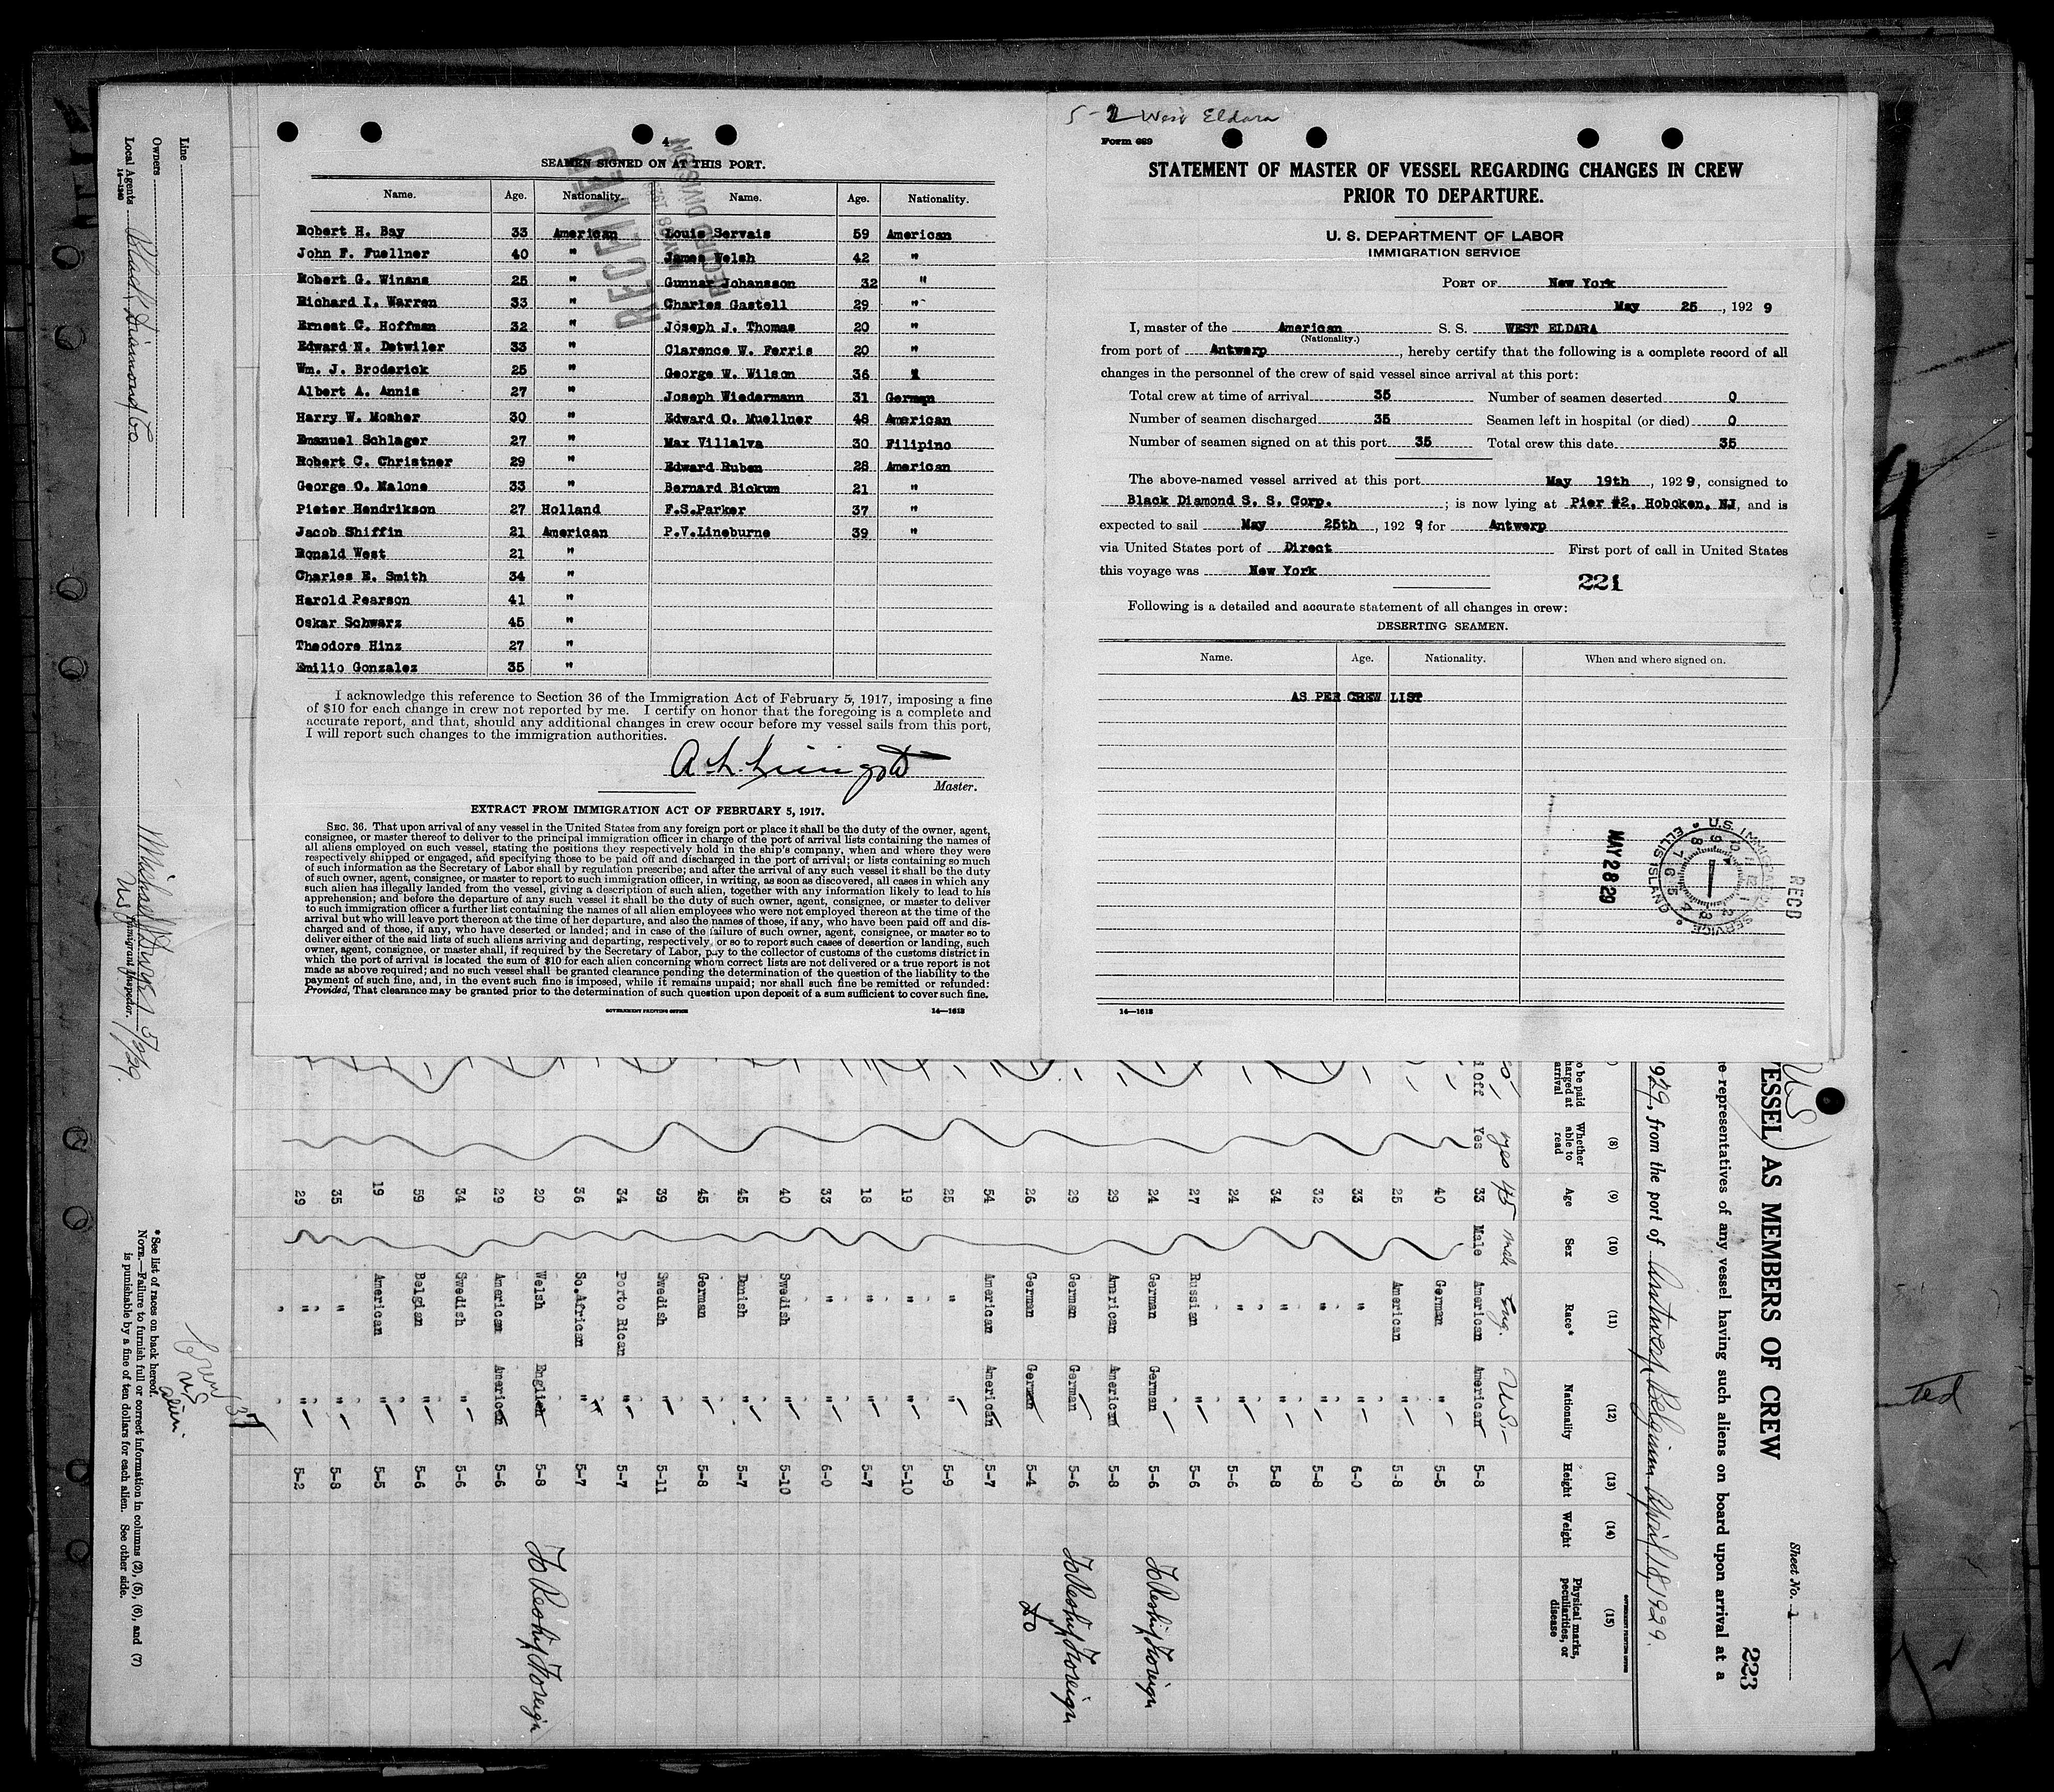 4
SEAMEN SIGNED ON AT THIS PORT.
Name. Age. Nationality. Name. Age. Nationality.
Robert H. Bay 33 American Louis Servais 59 American
John F. Fuellner 40 " James Welsh 42 "
Robert G. Winans 25 " Gunnar Johansson 32 "
Richard I. Warren 33 " Charles Gastell 29 "
Ernest C. Hoffman 32 " Joseph J. Thomas 20 "
Edward N. Detwiler 33 " Clarence W. Ferris 20 "
Wm. J. Broderick 25 " George W. Wilson 36 "
Albert A. Annis 27 " Joseph Wiedermann 31 German
Harry W. Mosher 30 " Edward O. Muellner 48 American
Emanuel Schlager 27 " Max Villalva 30 Filipino
Robert C. Christner 29 " Edward Ruben 28 American
George O. Malone 33 " Bernard Bickum 21 "
Pieter Hendrikson 27 Holland F.S.Parker 37 "
Jacob Shiffin 21 American P.V.Lineburne 39 "
Ronald West 21 "
Charles E. Smith 34 "
Harold Pearson 41 "
Oskar Schwarz 45 "
Theodore Hinz 27 "
Emilio Gonzalez 35 "
RECEIVED
MAY 28 1929
RECORD DIVISION
I acknowledge this reference to Section 36 of the Immigration Act of February 5, 1917, imposing a fine
of $10 for each change in crew not reported by me. I certify on honor that the foregoing is a complete and
accurate report, and that, should any additional changes in crew occur before my vessel sails from this port,
I will report such changes to the immigration authorities.
Master.
EXTRACT FROM IMMIGRATION ACT OF FEBRUARY 5, 1917.
SEC. 36. That upon arrival of any vessel in the United States from any foreign port or place it shall be the duty of the owner, agent,
consignee, or master thereof to deliver to the principal immigration officer in charge of the port of arrival lists containing the names of
all aliens employed on such vessel, stating the positions they respectively hold in the ship's company, when and where they were
respectively shipped or engaged, and specifying those to be paid off and discharged in the port of arrival; or lists containing so much
of such information as the Secretary of Labor shall by regulation prescribe; and after the arrival of any such vessel it shall be the duty
of such owner, agent, consignee, or master to report to such immigration officer, in writing, as soon as discovered, all cases in which any
such alien has illegally landed from the vessel, giving a description of such alien, together with any information likely to lead to his
apprehension; and before the departure of any such vessel it shall be the duty of such owner, agent, consignee, or master to deliver
to such immigration officer a further list containing the names of all alien employees who were not employed thereon at the time of the
arrival but who will leave port thereon at the time of her departure, and also the names of those, if any, who have been paid off and dis-
charged and of those, if any, who have deserted or landed; and in case of the failure of such owner, agent, consignee, or master so to
deliver either of the said lists of such aliens arriving and departing, respectively, or so to report such cases of desertion or landing, such
owner, agent, consignee, or master shall, if required by the Secretary of Labor, pay to the collector of customs of the customs district in
which the port of arrival is located the sum of $10 for each alien concerning whom correct lists are not delivered or a true report is not
made as above required; and no such vessel shall be granted clearance pending the determination of the question of the liability to the
payment of such fine, and, in the event such fine is imposed, while it remains unpaid; nor shall such fine be remitted or refunded:
Provided, That clearance may be granted prior to the determination of such question upon deposit of a sum sufficient to cover such fine.
GOVERNMENT PRINTING OFFICE 14—1613
5-2 West Eldara
Form 689
STATEMENT OF MASTER OF VESSEL REGARDING CHANGES IN CREW
PRIOR TO DEPARTURE.
U. S. DEPARTMENT OF LABOR
IMMIGRATION SERVICE
PORT OF New York
May 25, 1929
I, master of the American S. S. WEST ELDARA
(Nationality.)
from port of Antwerp, hereby certify that the following is a complete record of all
changes in the personnel of the crew of said vessel since arrival at this port:
Total crew at time of arrival 35 Number of seamen deserted 0
Number of seamen discharged 35 Seamen left in hospital (or died) 0
Number of seamen signed on at this port 35 Total crew this date 35
The above-named vessel arrived at this port May 19th, 1929, consigned to
Black Diamond S. S. Corp. ; is now lying at Pier #2, Hoboken, NJ, and is
expected to sail May 25th, 1929 for Antwerp
via United States port of Direct First port of call in United States
this voyage was New York
221
Following is a detailed and accurate statement of all changes in crew:
DESERTING SEAMEN.
Name. Age. Nationality. When and where signed on.
AS PER CREW LIST
MAY 28 29
U.S. IMMIGRATION SERVICE ELLIS ISLAND
RECD
14—1613
Sheet No. 1
223
US
ESSEL) AS MEMBERS OF CREW
e representatives of any vessel having such aliens on board upon arrival at a
929, from the port of Antwerp Belgium April 18, 1929.
GOVERNMENT PRINTING OFFICE
(8) (9) (10) (11) (12) (13) (14) (15)
o be paid
harged at
arrival
Whether
able to
read
Age Sex Race* Nationality Height Weight
Physical marks,
peculiarities, or
disease
yes 45 male Eng. U.S.
Off Yes 33 Male American American 5-8
40 German " 5-5
25 American " 5-8
33 " " 6-0
32 " " 5-8
34 " " 5-8
24 " " 5-6
27 Russian " 5-6
24 German German 5-6 To Reship Foreign
29 American American 5-8
29 German German 5-6 To Reship Foreign
26 German German 5-4 do
54 American American 5-7
25 " " 5-9
19 " " 5-10
18 " " 5-7
33 " " 6-0
40 Swedish " 5-10
45 Danish " 5-7
45 German " 5-8
39 Swedish " 5-11
34 Porto Rican " 5-7
36 So.African " 5-7
20 Welsh English 5-8 To Reship Foreign
29 American American 5-6
34 Swedish " 5-6
59 Belgian " 5-6
19 American " 5-5
35 " " 5-8
29 " " 5-2
37
Crew
US
alien
Line
Owners
Local Agents Black Diamond Co.
14—1240
US Immigrant Inspector.
* See list of races on back hereof.
NOTE.—Failure to furnish full or correct information in columns (2), (5), (6), and (7)
is punishable by a fine of ten dollars for each alien. See other side.